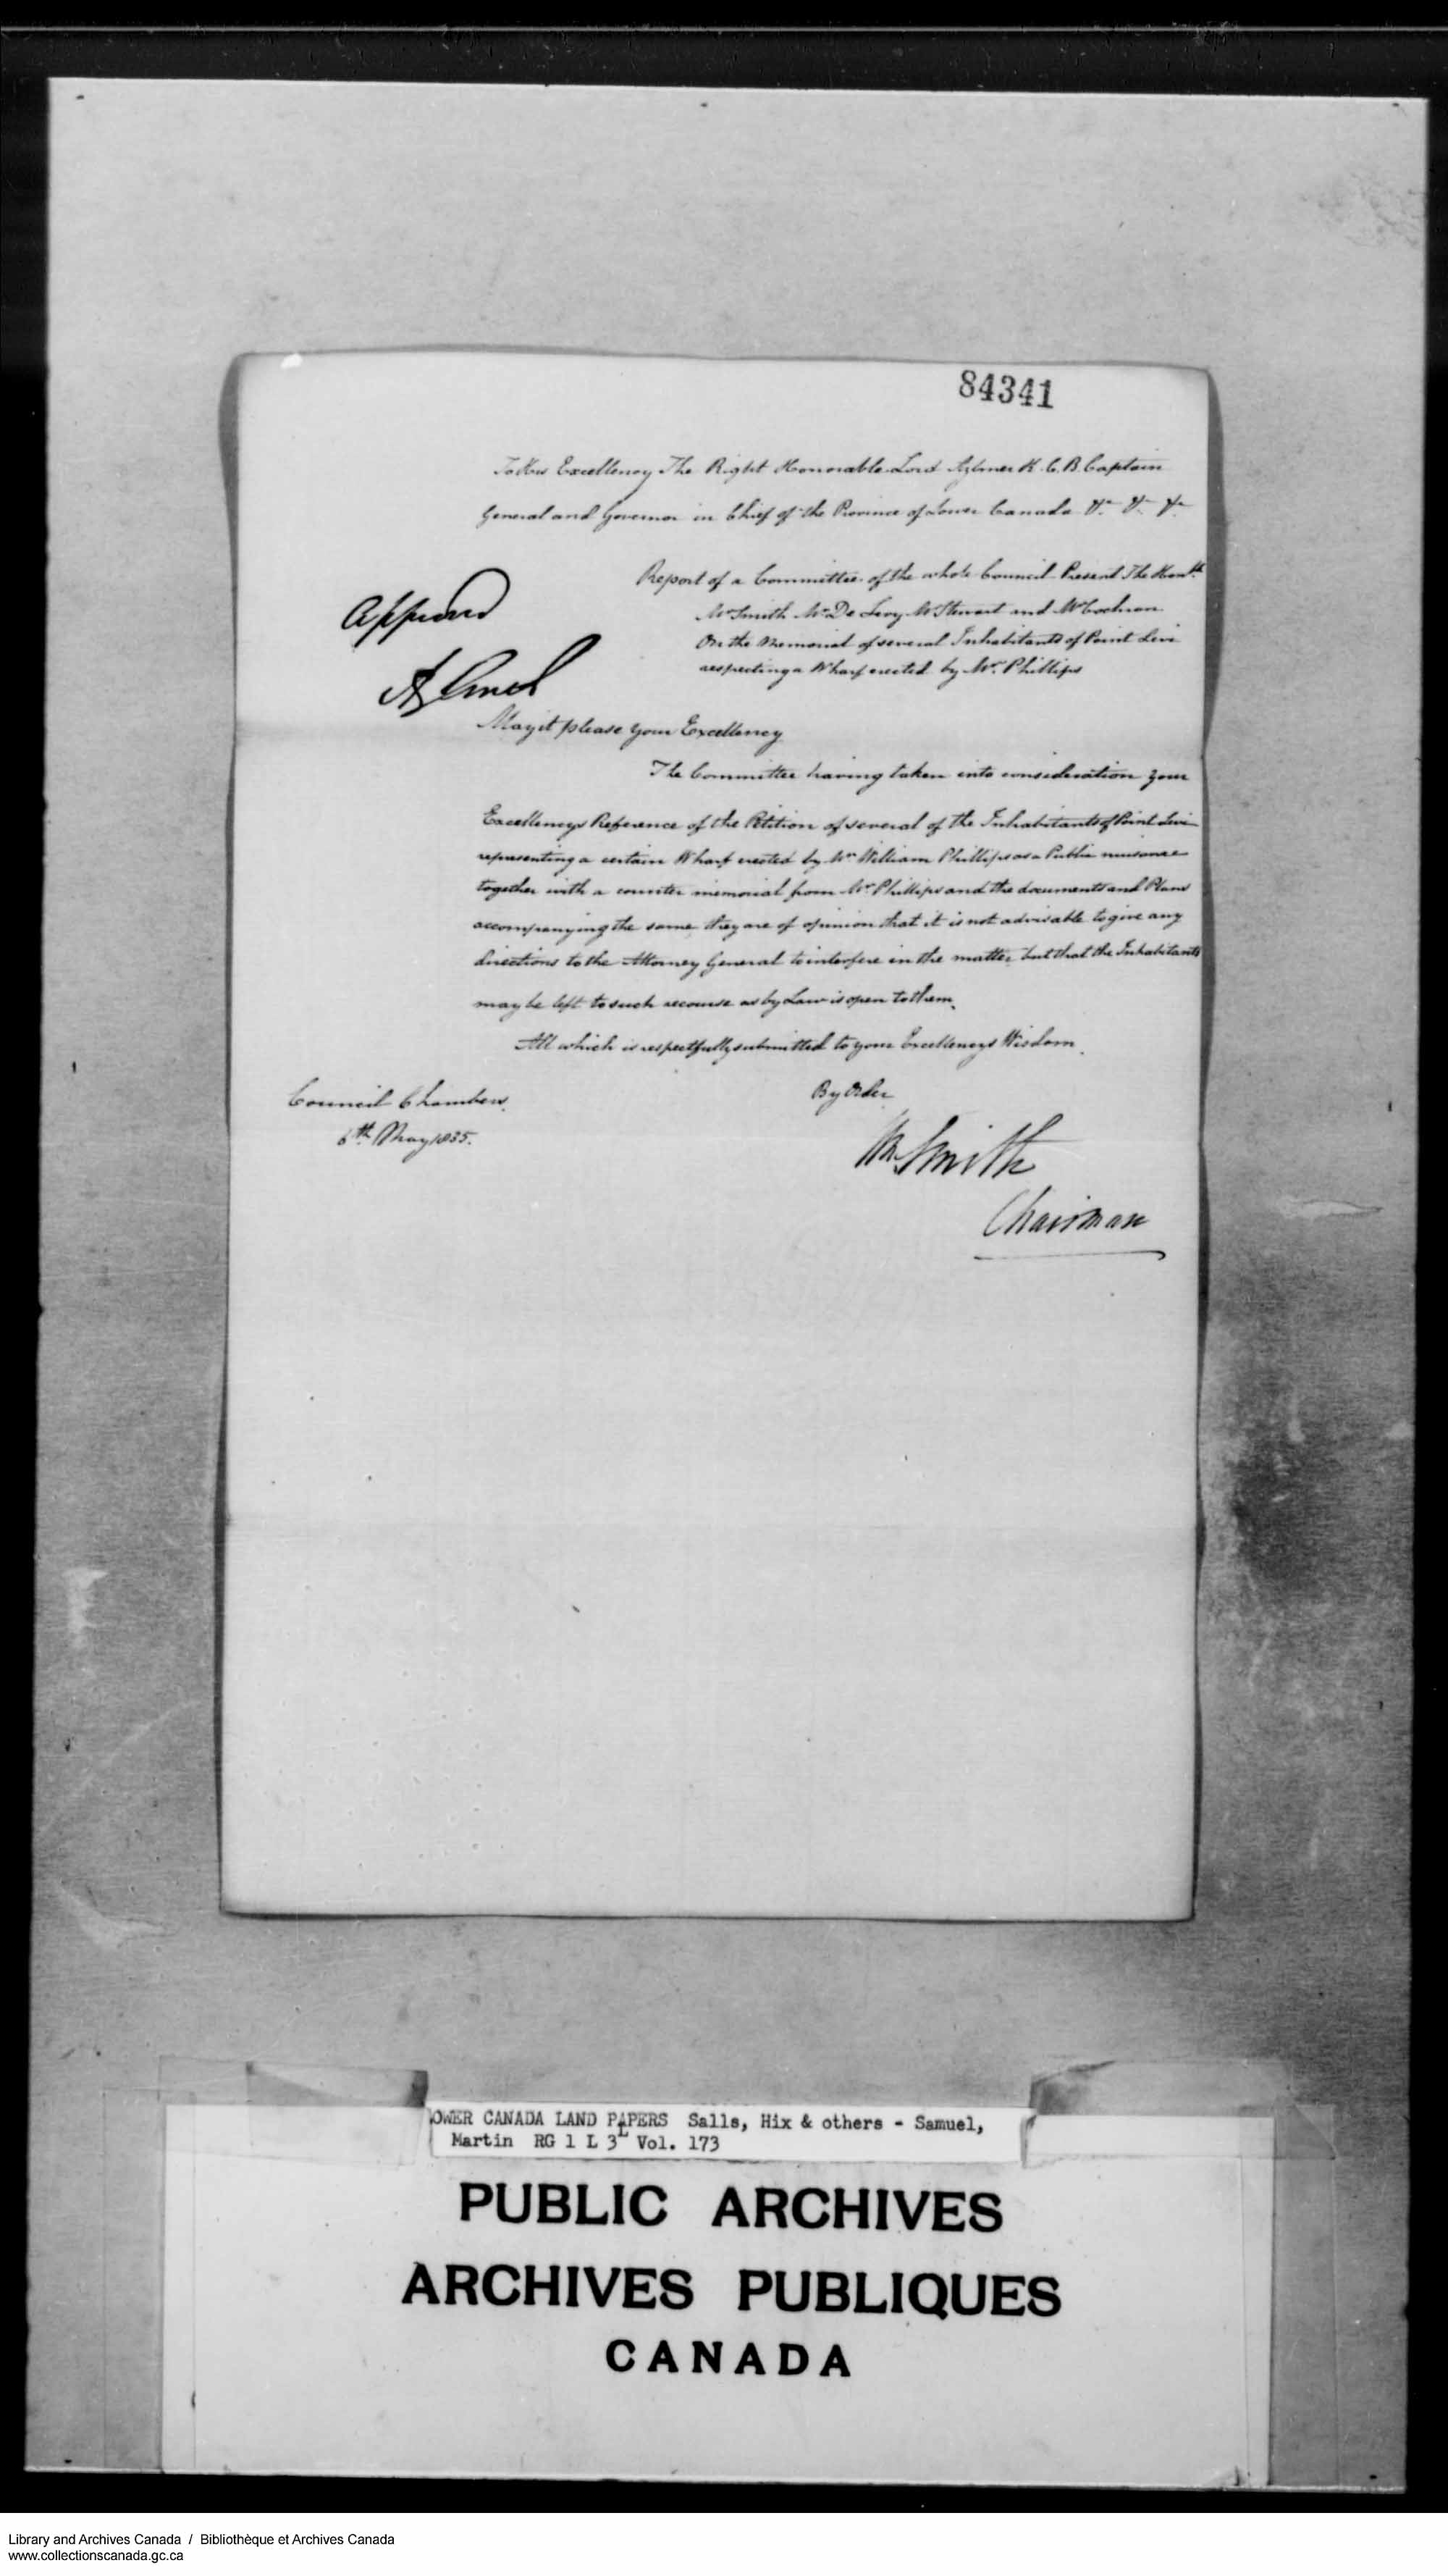 84341
To His Excellency The Right Honorable Lord Aylmer K. C. B. Captain
General and Governor in Chief of the Province of Lower Canada &c &c &c
Report of a Committee of the whole Council Present The Honble
Mr Smith Mr De Lery Mr Stewart and Mr Cochran
On the Memorial of several Inhabitants of Point Levi
respecting a Wharf erected by Mr. Phillips
Approved
Aylmer
May it please your Excellency
The Committee having taken into consideration your
Excellencys Reference of the Petition of several of the Inhabitants of Point Levi
representing a certain Wharf erected by Mr William Phillips as a Public nuisance
together with a counter memorial from Mr Phillips and the documents and Plans
accompanying the same they are of opinion that it is not advisable to give any
directions to the Attorney General to interfere in the matter but that the Inhabitants
may be left to such recourse as by Law is open to them.
All which is respectfully submitted to your Excellencys Wisdom.
By Order
Council Chambers.
6th May 1835.
Wm Smith
Chairman
OWER CANADA LAND PAPERS Salls, Hix & others - Samuel,
Martin RG 1 L 3L Vol. 173
PUBLIC ARCHIVES
ARCHIVES PUBLIQUES
CANADA
Library and Archives Canada / Bibliothèque et Archives Canada
www.collectionscanada.gc.ca